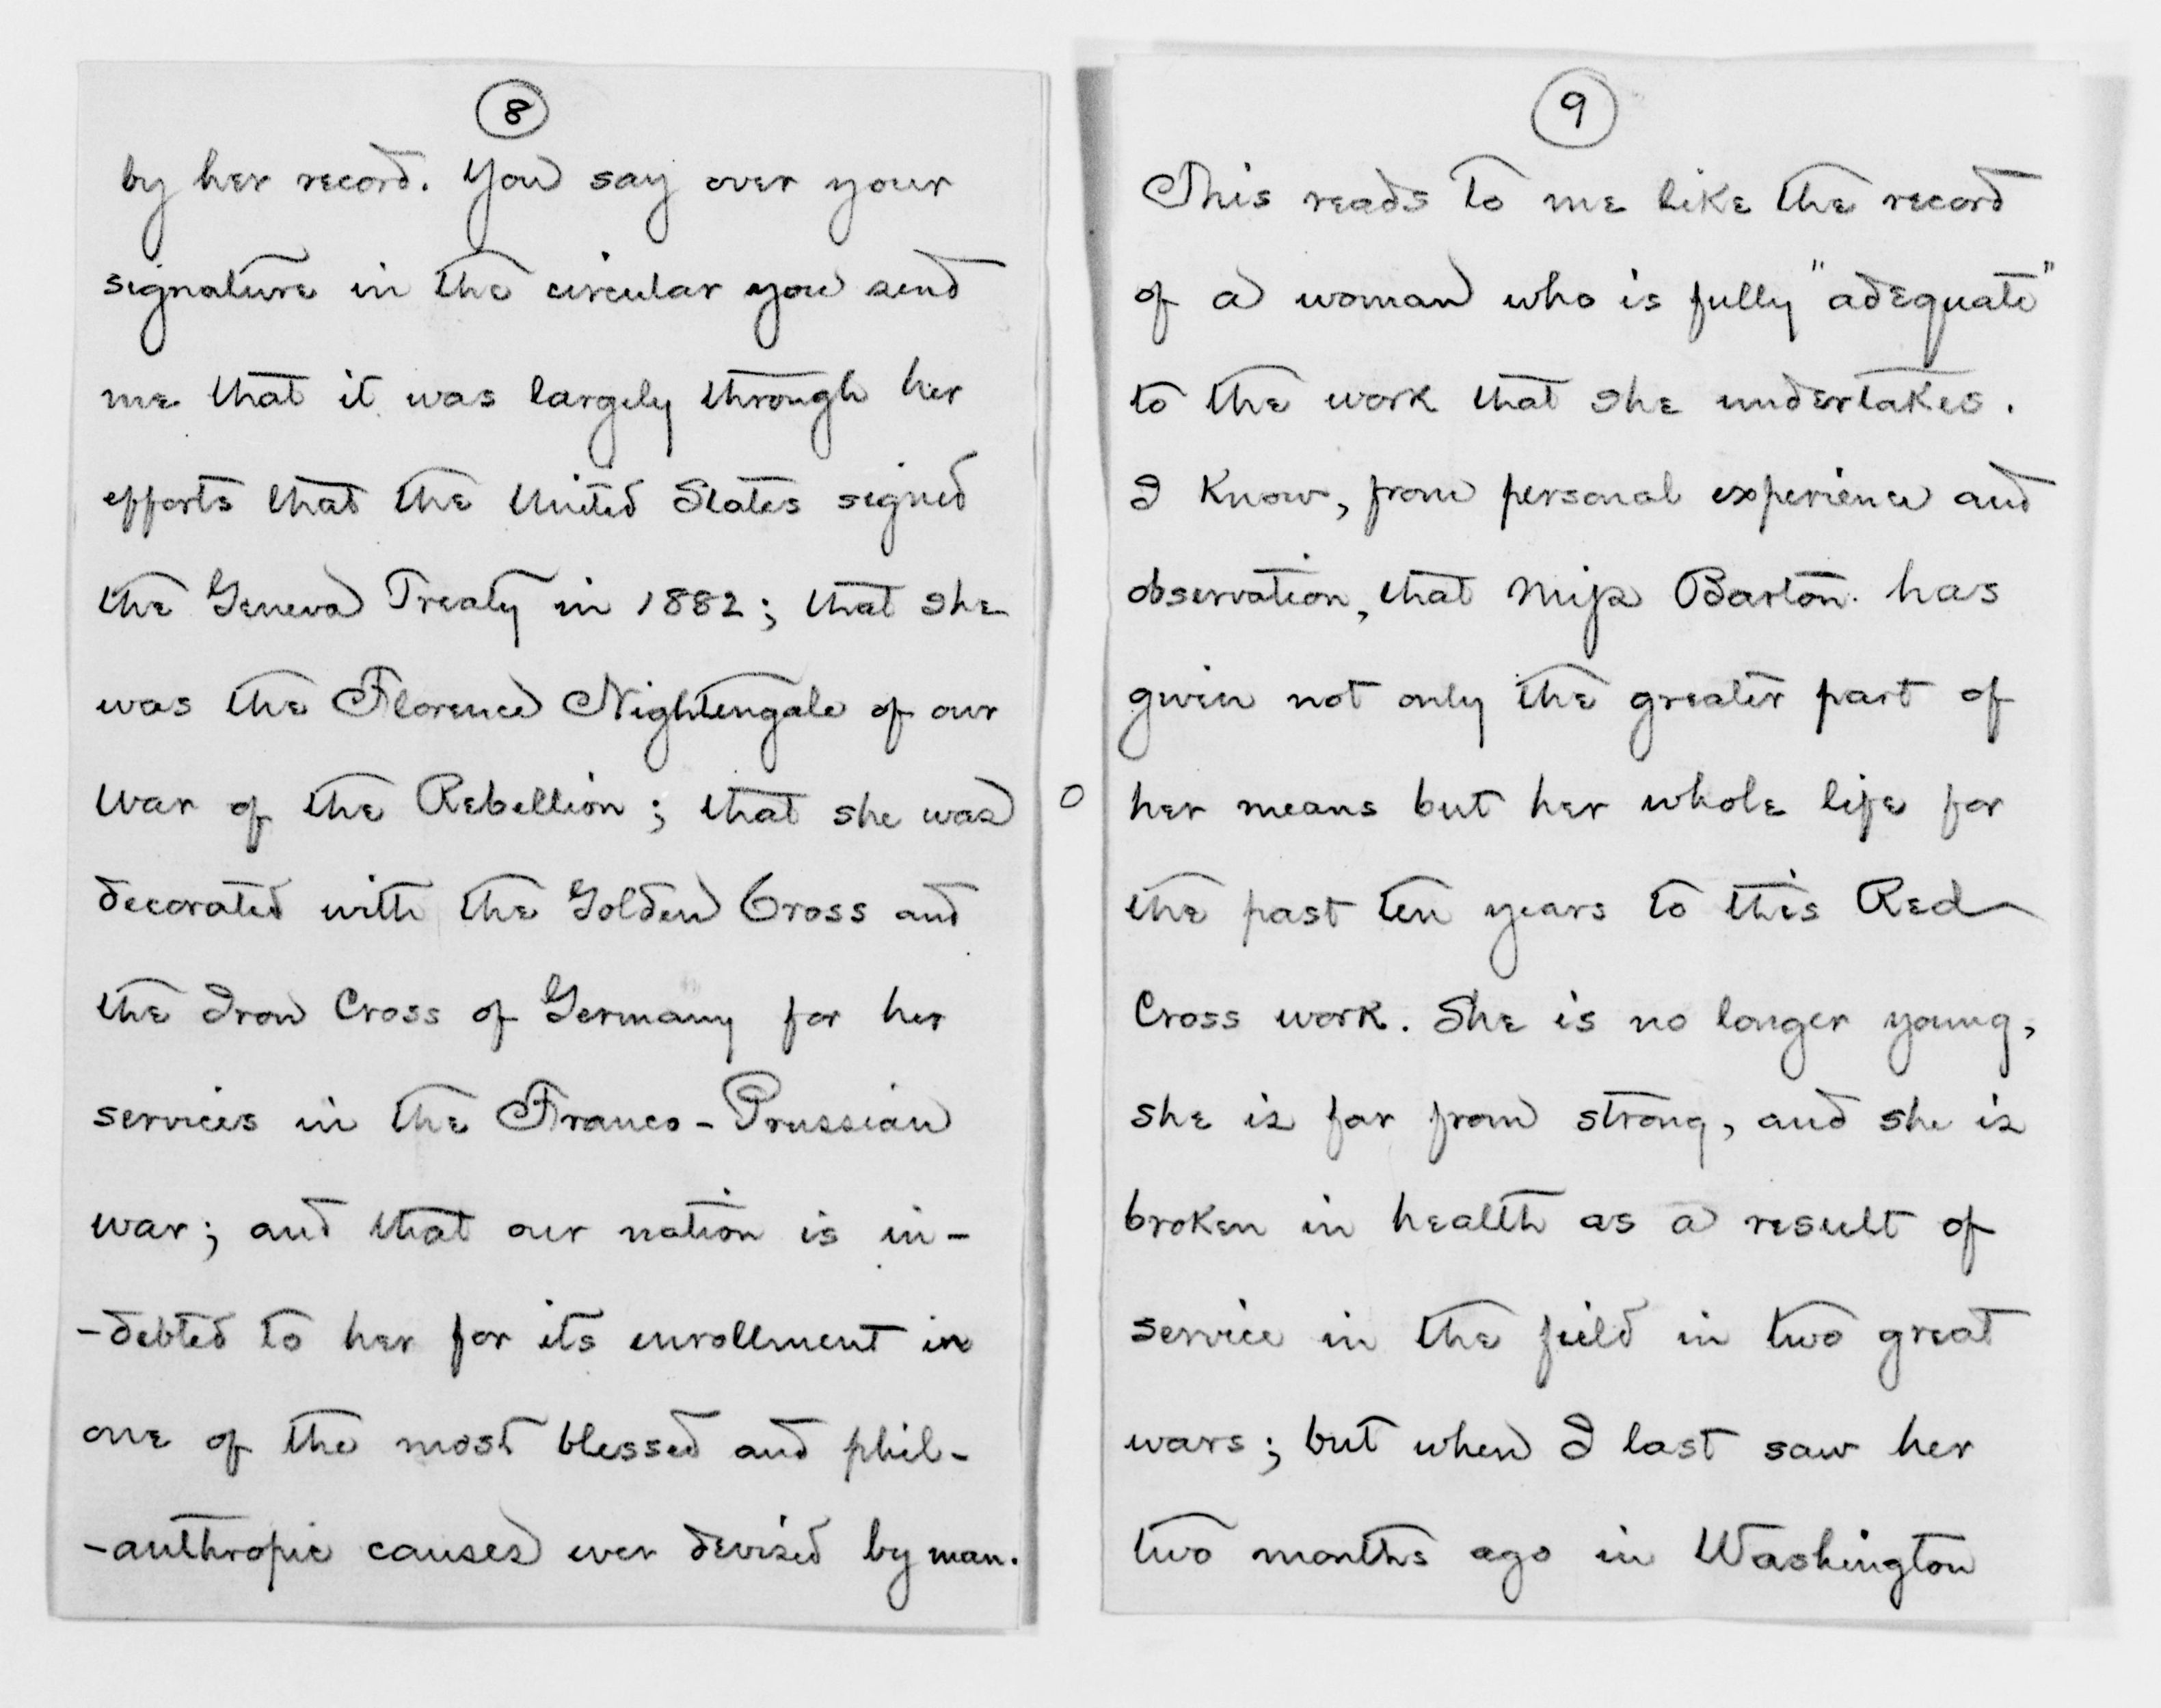 8
by her record. You say over your
signature in the circular you send
me that it was largely through her
efforts that the United States signed
the Geneva Treaty in 1882; that she
was the Florence Nightengale of our
war of the Rebellion; that she was
decorated with the Golden Cross and
the Iron Cross of Germany for her
services in the Franco-Prussian
war; and that our nation is in-
-debted to her for its enrollment in
one of the most blessed and phil-
-anthropic causes ever devised by man.
9
This reads to me like the record
of a woman who is fully "adequate"
to the work that she undertakes.
I know, from personal experience and
observation, that Miss Barton has
given not only the greater part of
her means but her whole life for
the past ten years to this Red
Cross work. She is no longer young,
she is far from strong, and she is
broken in health as a result of
service in the field in two great
wars; but when I last saw her
two months ago in Washington